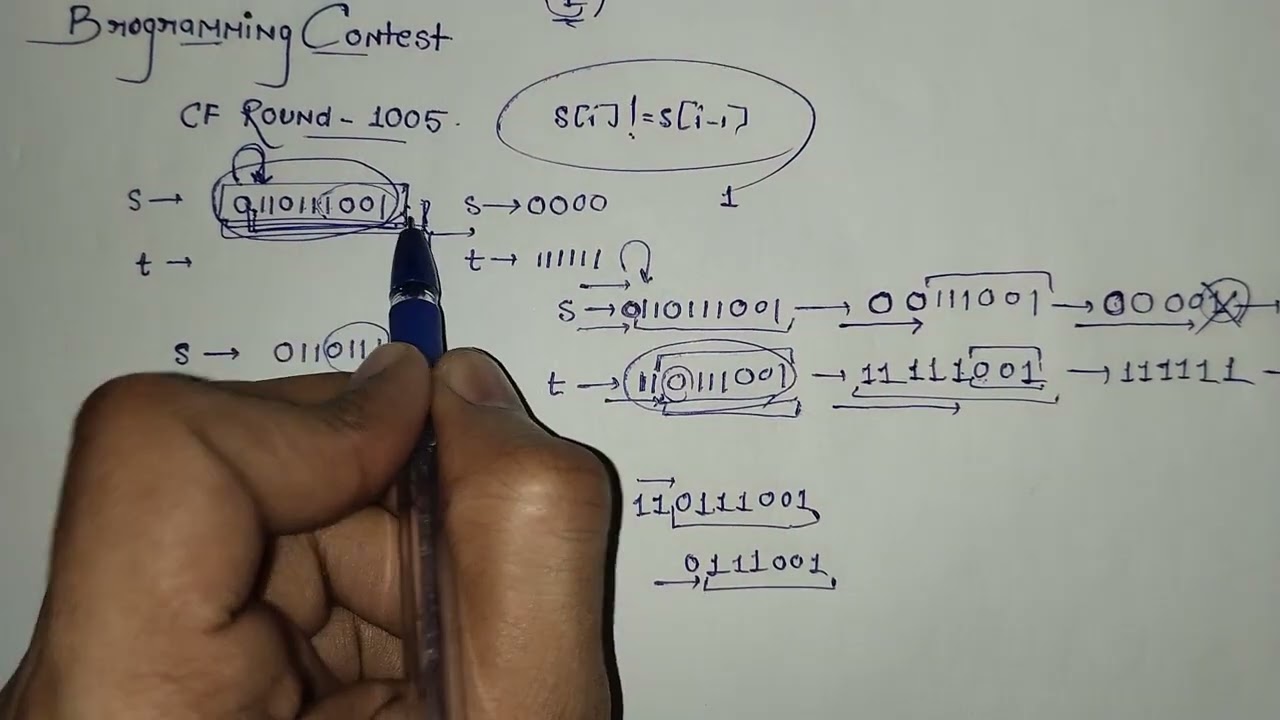 Brogramming Contest
CF Round - 1005.
s[i] != s[i-1]
1
s → 0110111001
s → 0000
t →
t → 111111
s → 0110111001 → 00111001 → 0000
s → 0110111
t → 110111001 → 11111001 → 111111
110111001
0111001